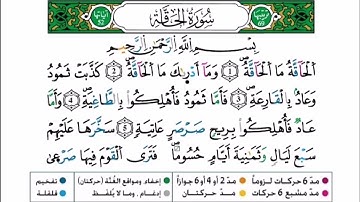 سُورَةُ الحَاقَّة
ترتيبها 69
آياتها 52
بِسْمِ اللَّهِ الرَّحْمَٰنِ الرَّحِيمِ
الْحَاقَّةُ ① مَا الْحَاقَّةُ ② وَمَا أَدْرَاكَ مَا الْحَاقَّةُ ③ كَذَّبَتْ ثَمُودُ
وَعَادٌ بِالْقَارِعَةِ ④ فَأَمَّا ثَمُودُ فَأُهْلِكُوا بِالطَّاغِيَةِ ⑤ وَأَمَّا
عَادٌ فَأُهْلِكُوا بِرِيحٍ صَرْصَرٍ عَاتِيَةٍ ⑥ سَخَّرَهَا عَلَيْهِمْ
سَبْعَ لَيَالٍ وَثَمَٰنِيَةَ أَيَّامٍ حُسُومًا فَتَرَى الْقَوْمَ فِيهَا صَرْعَىٰ
مدّ 6 حركات لزوماً مدّ 2 أو 4 أو 6 جوازاً إخفاء ومواقع الغُنَّة (حركتان) تفخيم
مدّ مشبع 6 حركات مدّ حركتان إدغام ، وما لا يُلفظ قلقلة